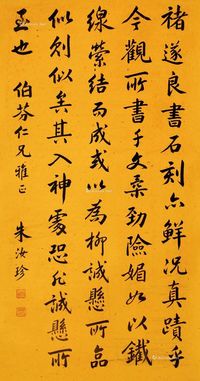 褚遂良書石刻亦鮮況真蹟乎
今觀所書千文桑勁險媚如以鐵
線縈結而成或以為柳誠懸所臨
似則似矣其入神處恐非誠懸所
及也 伯芬仁兄雅正
朱汝珍